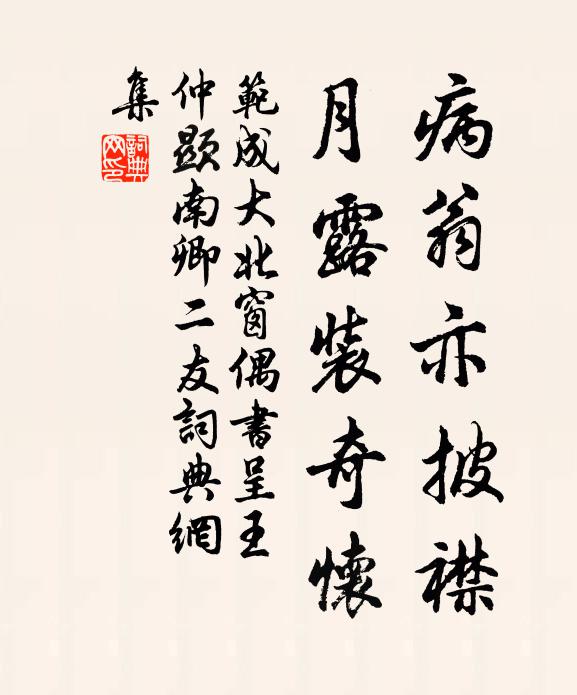 病翁亦披襟
月露裝奇懷
範成大北窗偶書呈王
仲顯南卿二友詞典網
集
詞典
网印